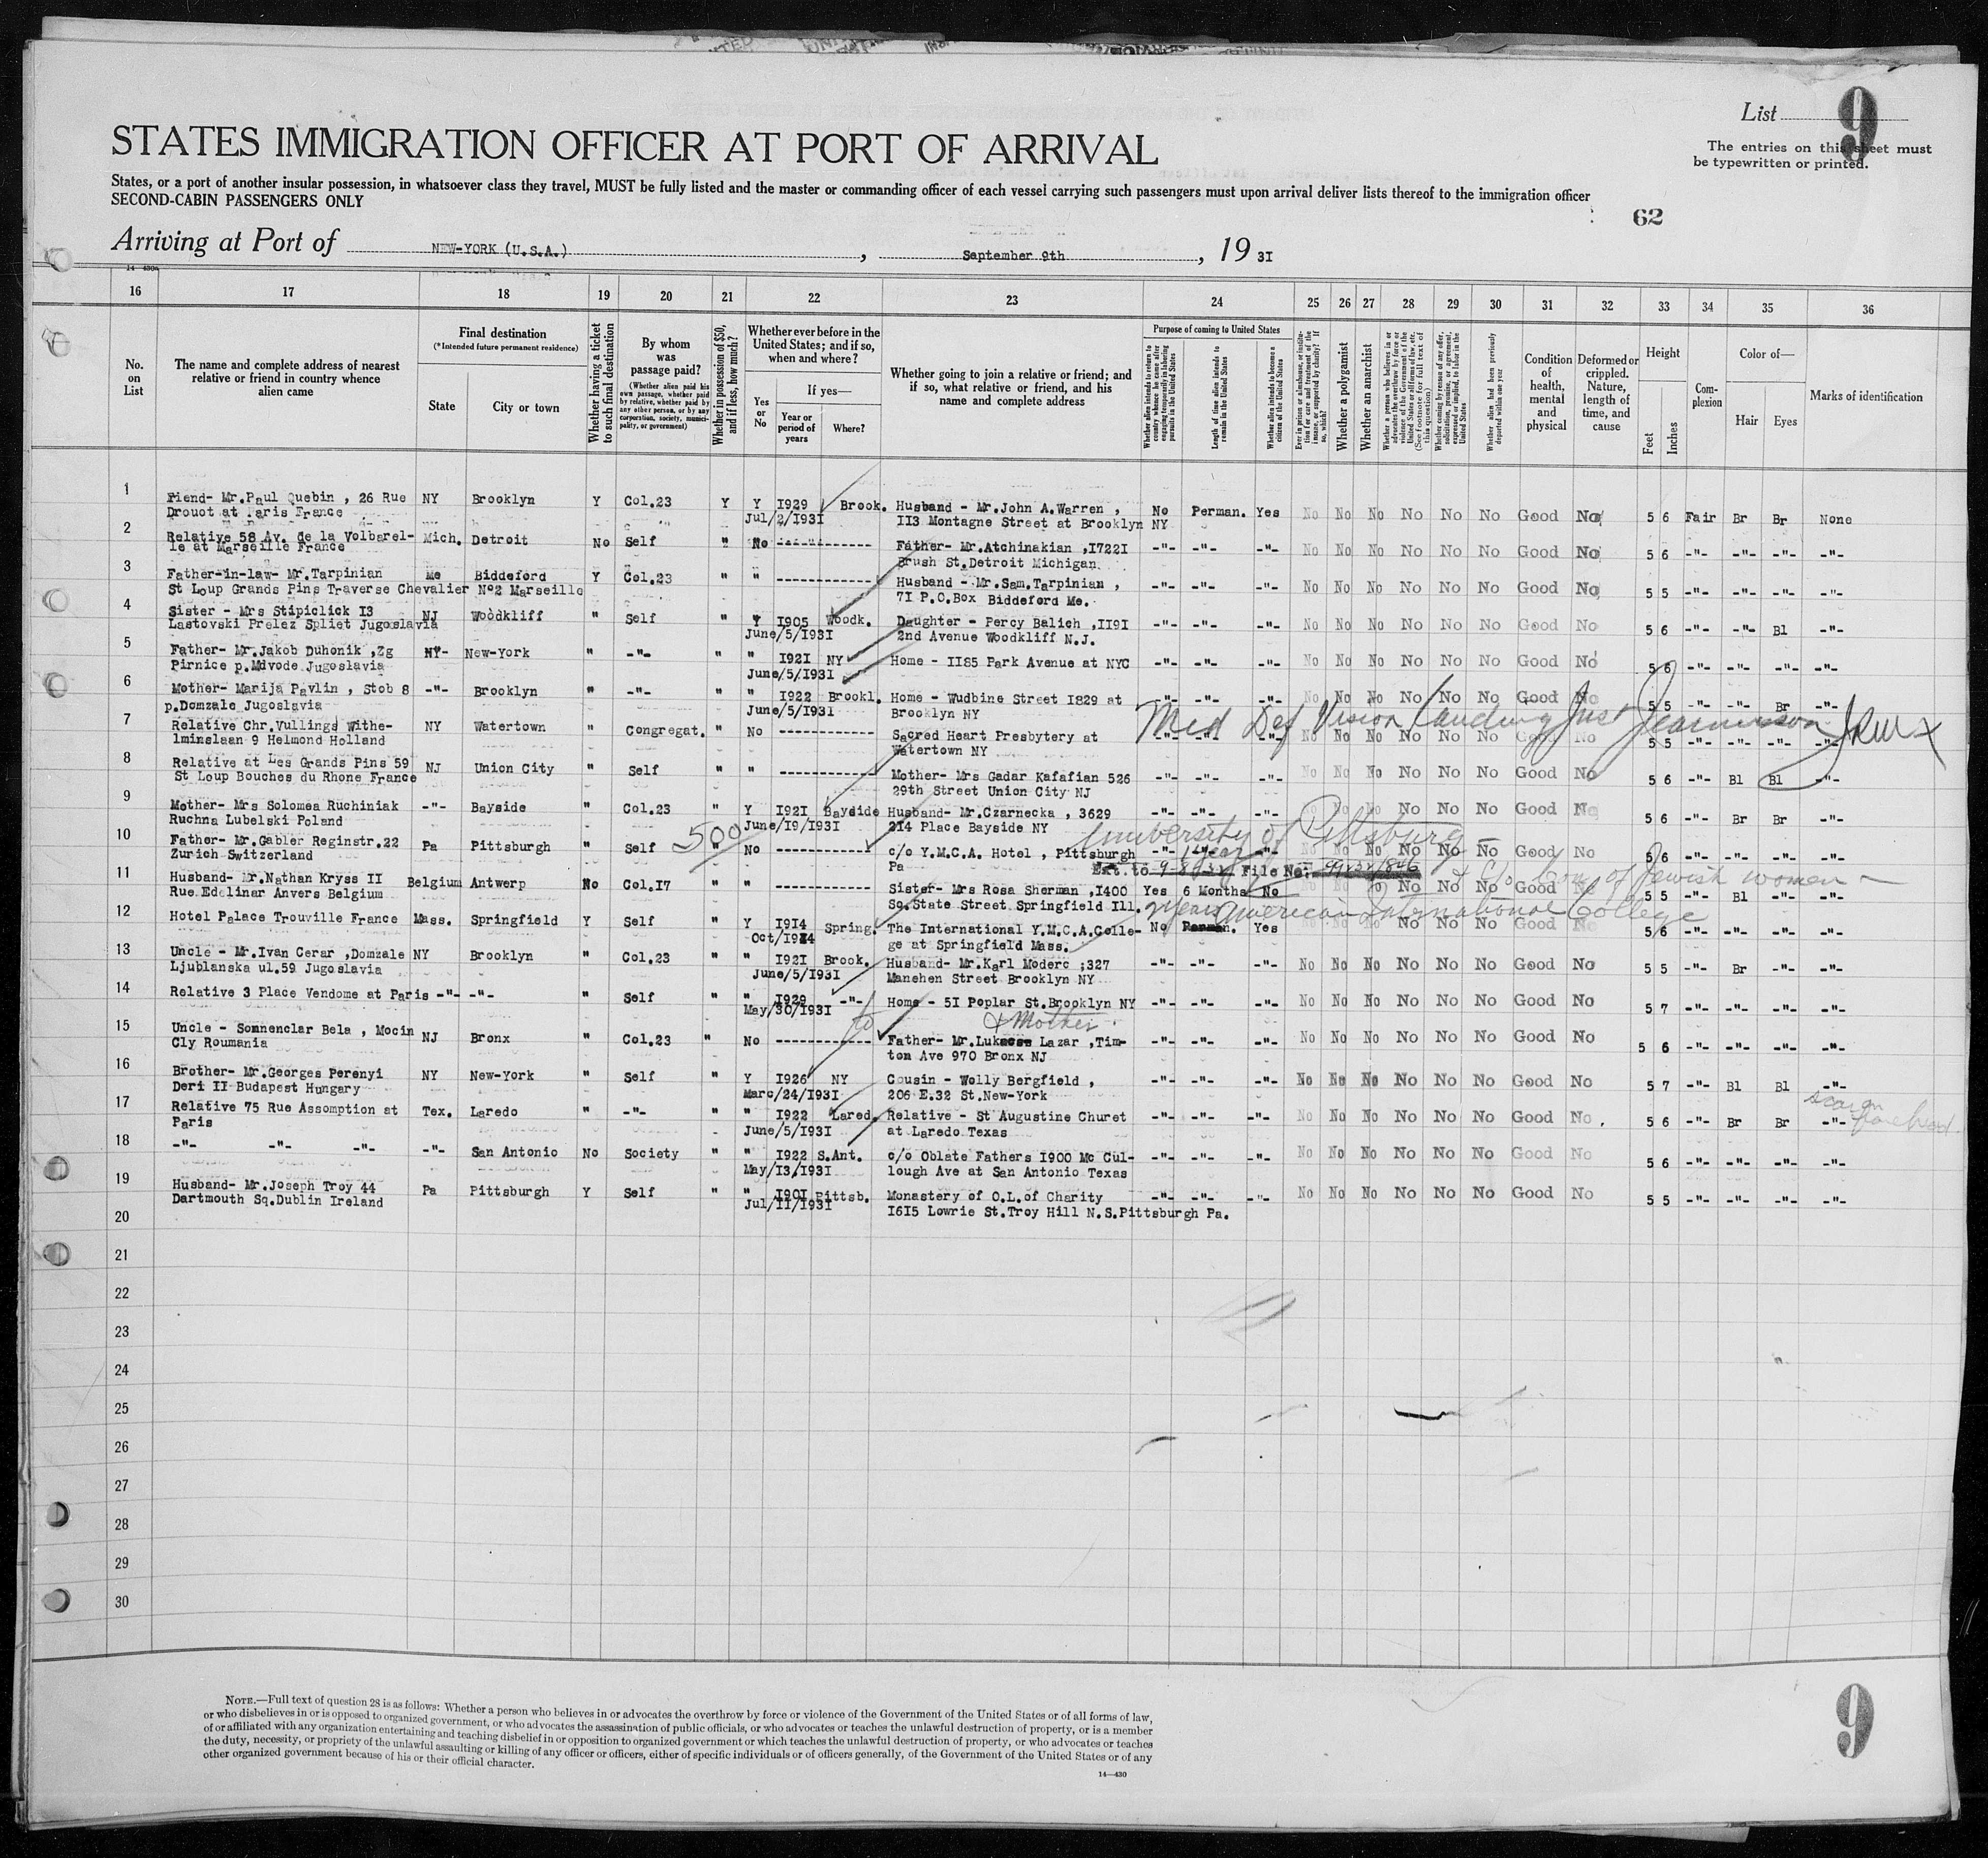 List 9
The entries on this sheet must
be typewritten or printed.
STATES IMMIGRATION OFFICER AT PORT OF ARRIVAL
States, or a port of another insular possession, in whatsoever class they travel, MUST be fully listed and the master or commanding officer of each vessel carrying such passengers must upon arrival deliver lists thereof to the immigration officer
SECOND-CABIN PASSENGERS ONLY
62
Arriving at Port of NEW-YORK (U.S.A.) , September 9th , 19 3I
14 430a
16 17 18 19 20 21 22 23 24 25 26 27 28 29 30 31 32 33 34 35 36
No. on List
The name and complete address of nearest relative or friend in country whence alien came
Final destination
(*Intended future permanent residence)
State
City or town
Whether having a ticket to such final destination
By whom was passage paid?
(Whether alien paid his own passage, whether paid by relative, whether paid by any other person, or by any corporation, society, municipality, or government)
Whether in possession of $50, and if less, how much?
Whether ever before in the United States; and if so, when and where?
Yes or No
If yes—
Year or period of years
Where?
Whether going to join a relative or friend; and if so, what relative or friend, and his name and complete address
Purpose of coming to United States
Whether alien intends to return to country whence he came after engaging temporarily in laboring pursuits in the United States
Length of time alien intends to remain in the United States
Whether alien intends to become a citizen of the United States
Ever in prison or almshouse, or institution for care and treatment of the insane, or supported by charity? If so, which?
Whether a polygamist
Whether an anarchist
Whether a person who believes in or advocates the overthrow by force or violence of the Government of the United States or all forms of law, etc. (See footnote for full text of this question)
Whether coming by reason of any offer, solicitation, promise, or agreement, expressed or implied, to labor in the United States
Whether alien had been previously deported within one year
Condition of health, mental and physical
Deformed or crippled. Nature, length of time, and cause
Height
Feet
Inches
Complexion
Color of—
Hair
Eyes
Marks of identification
1 Fiend- Mr.Paul Quebin , 26 Rue NY Brooklyn Y Col.23 Y Y I929 Brook. Husband - Mr.John A.Warren , No Perman. Yes No No No No No No Good No 5 6 Fair Br Br None
Drouot at Paris France Jul/2/I93I II3 Montagne Street at Brooklyn NY
2 Relative 58 Av. de la Volbarel- Mich. Detroit No Self " No ------------ Father- Mr.Atchinakian ,I722I -"- -"- -"- No No No No No No Good No 5 6 -"- -"- -"- -"-
le at Marseille France Brush St.Detroit Michigan.
3 Father-in-law- Mr.Tarpinian Me Biddeford Y Col.23 " " ------------ Husband - Mr.Sam.Tarpinian , -"- -"- -"- No No No No No No Good No 5 5 -"- -"- -"- -"-
St Loup Grands Pins Traverse Chevalier No2 Marseille 7I P.O.Box Biddeford Me.
4 Sister - Mrs Stipiclick I3 NJ Woodkliff " Self " Y I905 Woodk. Daughter - Percy Balich ,II9I -"- -"- -"- No No No No No No Good No 5 6 -"- -"- Bl -"-
Lastovski Prelez Spliet Jugoslavia June/5/I93I 2nd Avenue Woodkliff N.J.
5 Father- Mr.Jakob Duhonik ,Zg NY- New-York " -"- " " I92I NY Home - II85 Park Avenue at NYC -"- -"- -"- No No No No No No Good No 5 6 -"- -"- -"- -"-
Pirnice p.Mdvode Jugoslavia June/5/I93I
6 Mother- Marija Pavlin , Stob 8 -"- Brooklyn " -"- " " I922 Brookl. Home - Wudbine Street I829 at -"- -"- -"- No No No No No No Good No 5 5 -"- -"- Br -"-
p.Domzale Jugoslavia June/5/I93I Brooklyn NY
Med Def Vision
7 Relative Chr.Vullings Withe- NY Watertown " Congregat. " No ------------ Sacred Heart Presbytery at -"- -"- -"- No No No No No No Good No 5 5 -"- -"- -"- -"-
lminslaan 9 Helmond Holland Watertown NY
8 Relative at Les Grands Pins 59 NJ Union City " Self " " ------------ Mother- Mrs Gadar Kafafian 526 -"- -"- -"- No No No No No No Good No 5 6 -"- Bl Bl -"-
St Loup Bouches du Rhone France 29th Street Union City NJ
9 Mother- Mrs Solomea Ruchiniak -"- Bayside " Col.23 " Y I92I Bayside Husband- Mr.Czarnecka , 3629 -"- -"- -"- No No No No No No Good No 5 6 -"- Br Br -"-
Ruchna Lubelski Poland June/I9/I93I 2I4 Place Bayside NY
500 University of Pittsburg
10 Father- Mr.Gabler Reginstr.22 Pa Pittsburgh " Self " No ------------ c/o Y.M.C.A. Hotel , Pittsburgh -"- 1 year -"- No No No No No No Good No 5 6 -"- -"- -"- -"-
Zurich Switzerland Pa Ext. to File No.
11 Husband- Mr.Nathan Kryss II Belgium Antwerp No Col.I7 " " ------------ Sister- Mrs Rosa Sherman ,I400 Yes 6 Months No No No No No No No Good No 5 5 -"- Bl -"- -"-
Rue Edelinar Anvers Belgium Sq.State Street.Springfield Ill.
of Jewish women
American International College
12 Hotel Palace Trouville France Mass. Springfield Y Self " Y I9I4 Spring. The International Y.M.C.A.Colle- No Perman. Yes No No No No No No Good No 5 6 -"- -"- -"- -"-
Oct/I924 ge at Springfield Mass.
13 Uncle - Mr.Ivan Cerar ,Domzale NY Brooklyn " Col.23 " " I92I Brook. Husband- Mr.Karl Moderc ;327 -"- -"- -"- No No No No No No Good No 5 5 -"- Br -"- -"-
Ljublanska ul.59 Jugoslavia June/5/I93I Manehen Street Brooklyn NY
14 Relative 3 Place Vendome at Paris -"- -"- " Self " " I929 -"- Home - 5I Poplar St.Brooklyn NY -"- -"- -"- No No No No No No Good No 5 7 -"- -"- -"- -"-
May/30/I93I
to + Mother
15 Uncle - Somnenclar Bela , Mocin NJ Bronx " Col.23 " No ------------ Father- Mr.Lukacse Lazar ,Tim- -"- -"- -"- No No No No No No Good No 5 6 -"- -"- -"- -"-
Cly Roumania ton Ave 970 Bronx NJ
16 Brother- Mr.Georges Perenyi NY New-York " Self " Y I926 NY Cousin - Wolly Bergfield , -"- -"- -"- No No No No No No Good No 5 7 -"- Bl Bl -"-
Deri II Budapest Hungary Marc/24/I93I 206 E.32 St.New-York
17 Relative 75 Rue Assomption at Tex. Laredo " -"- " " I922 Lared. Relative - St Augustine Churet -"- -"- -"- No No No No No No Good No 5 6 -"- Br Br -"- scar on forehead
Paris June/5/I93I at Laredo Texas
18 -"- -"- -"- -"- San Antonio No Society " " I922 S.Ant. c/o Oblate Fathers I900 Mc Cul- -"- -"- -"- No No No No No No Good No 5 6 -"- -"- -"- -"-
May/I3/I93I lough Ave at San Antonio Texas
19 Husband- Mr.Joseph Troy 44 Pa Pittsburgh Y Self " " I90I Pittsb. Monastery of O.L.of Charity -"- -"- -"- No No No No No No Good No 5 5 -"- -"- -"- -"-
Dartmouth Sq.Dublin Ireland Jul/II/I93I I6I5 Lowrie St.Troy Hill N.S.Pittsburgh Pa.
20
21
22
23
24
25
26
27
28
29
30
NOTE.—Full text of question 28 is as follows: Whether a person who believes in or advocates the overthrow by force or violence of the Government of the United States or of all forms of law,
or who disbelieves in or is opposed to organized government, or who advocates the assassination of public officials, or who advocates or teaches the unlawful destruction of property, or is a member
of or affiliated with any organization entertaining and teaching disbelief in or opposition to organized government or which teaches the unlawful destruction of property, or who advocates or teaches
the duty, necessity, or propriety of the unlawful assaulting or killing of any officer or officers, either of specific individuals or of officers generally, of the Government of the United States or of any
other organized government because of his or their official character.
14—430
9